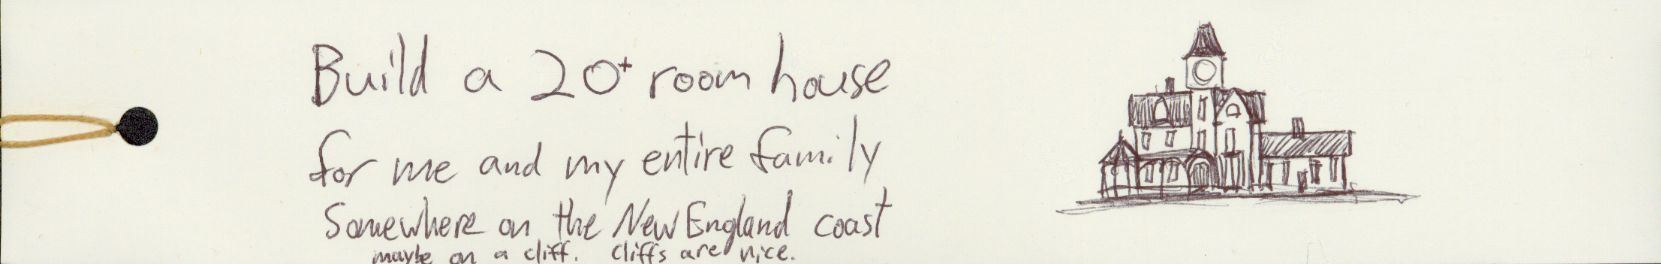 Build a 20+ room house
for me and my entire family
Somewhere on the New England coast
maybe on a cliff. Cliffs are nice.